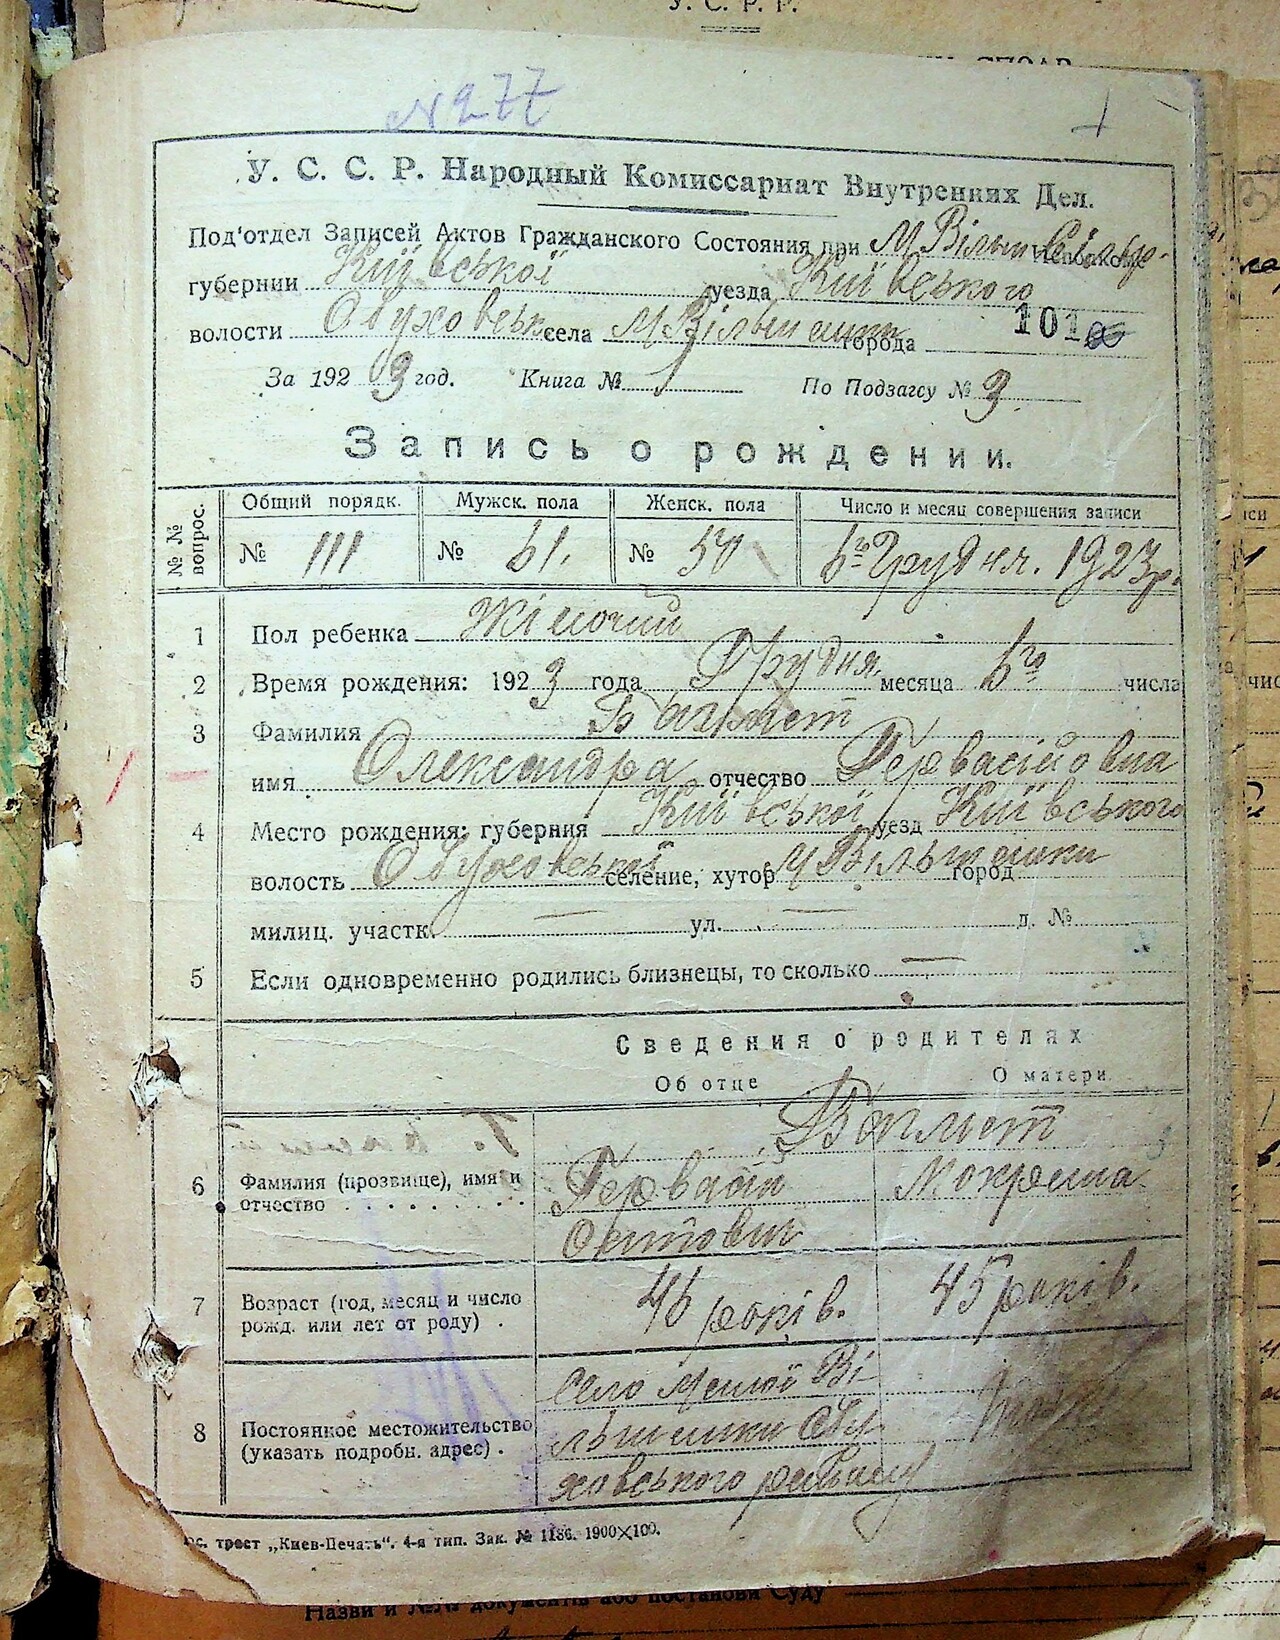 У. С. Р. Р.
№ 277
У. С. С. Р. Народный Комиссариат Внутренних Дел.
Под'отдел Записей Актов Гражданского Состояния при М Вільш
губернии Київської уезда Київського
волости Обуховськ села М Вільшанки города 101
За 1923 год. Книга № По Подзагсу № 3.
Запись о рождении.
№№ вопрос. Общий порядк. Мужск. пола Женск. пола Число и месяц совершения записи
№ 111 № 61. № 50 6го Грудня. 1923 р.
1 Пол ребенка Жіночий
2 Время рождения: 1923 года Грудня месяца 6го числа
3 Фамилия
имя Олександра отчество Гервасійовна
4 Место рождения: губерния Київської уезд Київського
волость Обуховської селение, хутор М Вільшанки город
милиц. участк. — ул. — д. №
5 Если одновременно родились близнецы, то сколько —
Сведения о родителях
Об отце О матери
6 Фамилия (прозвище), имя и отчество
Гервасій Мокрина
Остпович
7 Возраст (год, месяц и число рожд. или лет от роду) . 46 років. 45 років.
8 Постоянное местожительство (указать подробн. адрес) .
село Малої Ві-
льшанки Обу
ховського району
трест „Киев-Печать". 4-я тип. Зак. № 1186. 1900×100.
Назви й №№ документів або постанови Суду